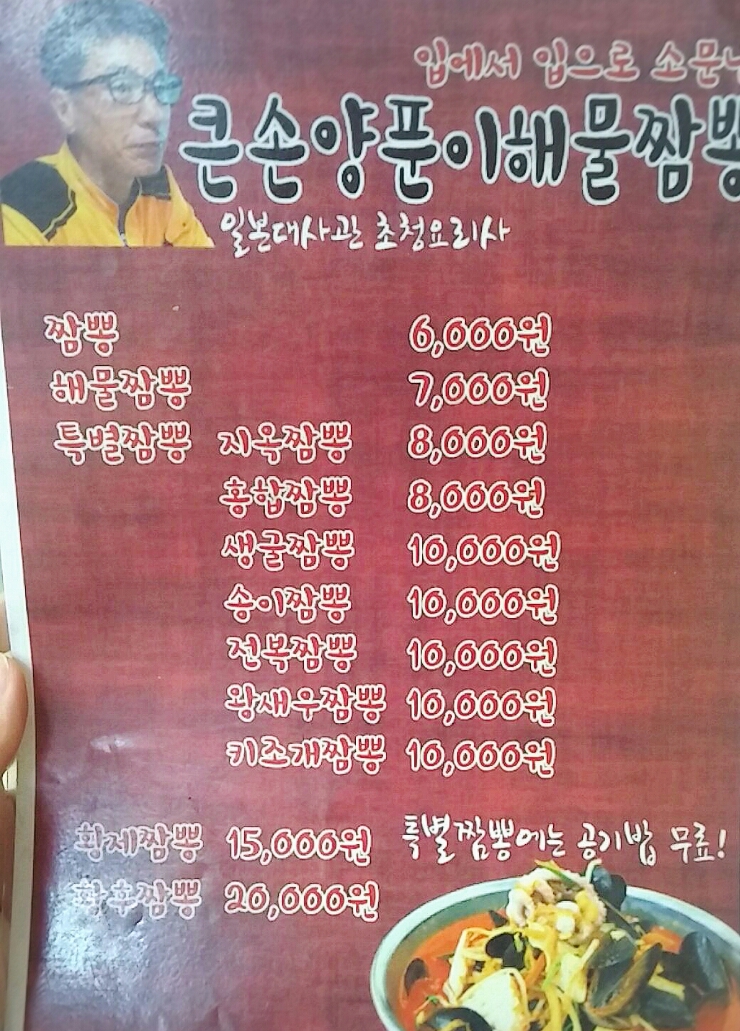 입에서 입으로
큰손양푼이해물짬뽕
일본대사관 초청요리사
짬뽕 6,000원
해물짬뽕 7,000원
특별짬뽕 지옥짬뽕 8,000원
홍합짬뽕 8,000원
생굴짬뽕 10,000원
송이짬뽕 10,000원
전복짬뽕 10,000원
왕새우짬뽕 10,000원
키조개짬뽕 10,000원
황제짬뽕 15,000원 특별짬뽕에는 공기밥 무료!
황후짬뽕 20,000원